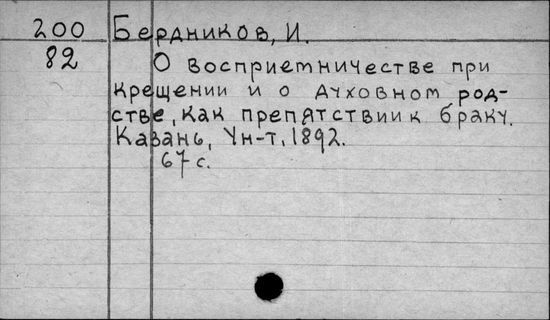 200 Бердников, И.
82 О восприемничестве при
крещении и о духовном род-
стве, как препятствии к браку.
Казань, Ун-т, 1892.
67 с.